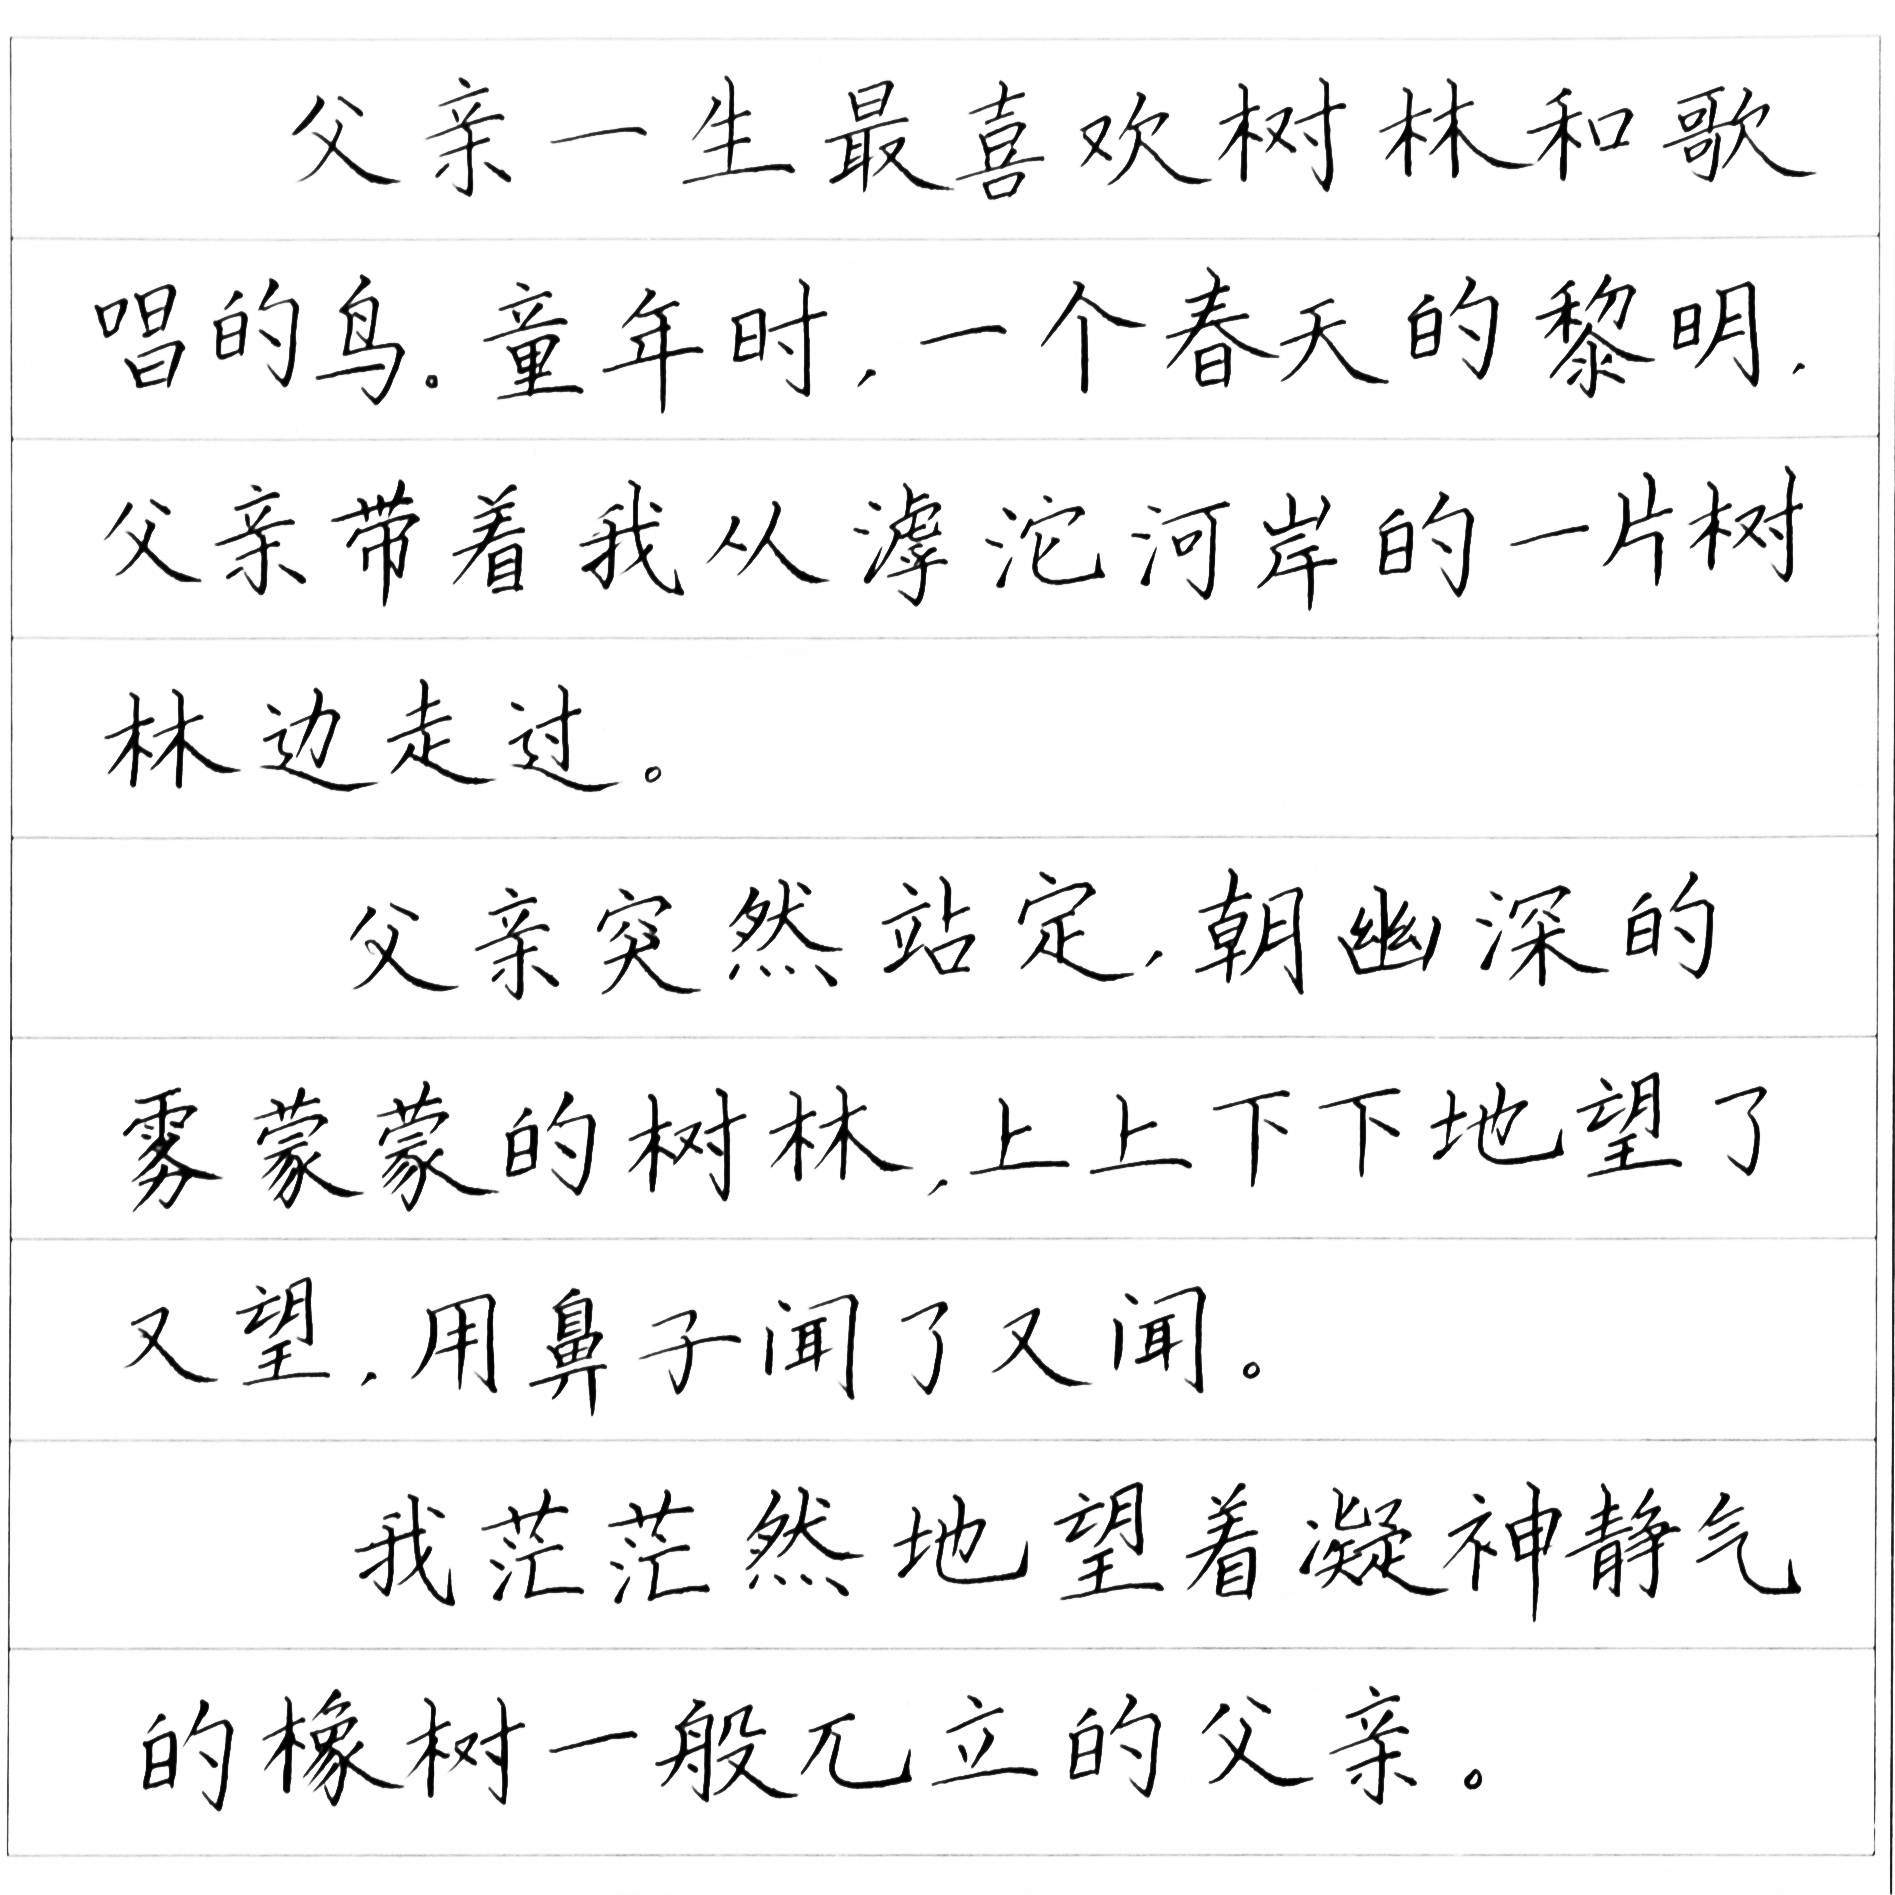 父亲一生最喜欢树林和歌
唱的鸟。童年时,一个春天的黎明,
父亲带着我从滹沱河岸的一片树
林边走过。
父亲突然站定,朝幽深的
雾蒙蒙的树林,上上下下地望了
又望,用鼻子闻了又闻。
我茫茫然地望着凝神静气
的橡树一般兀立的父亲。